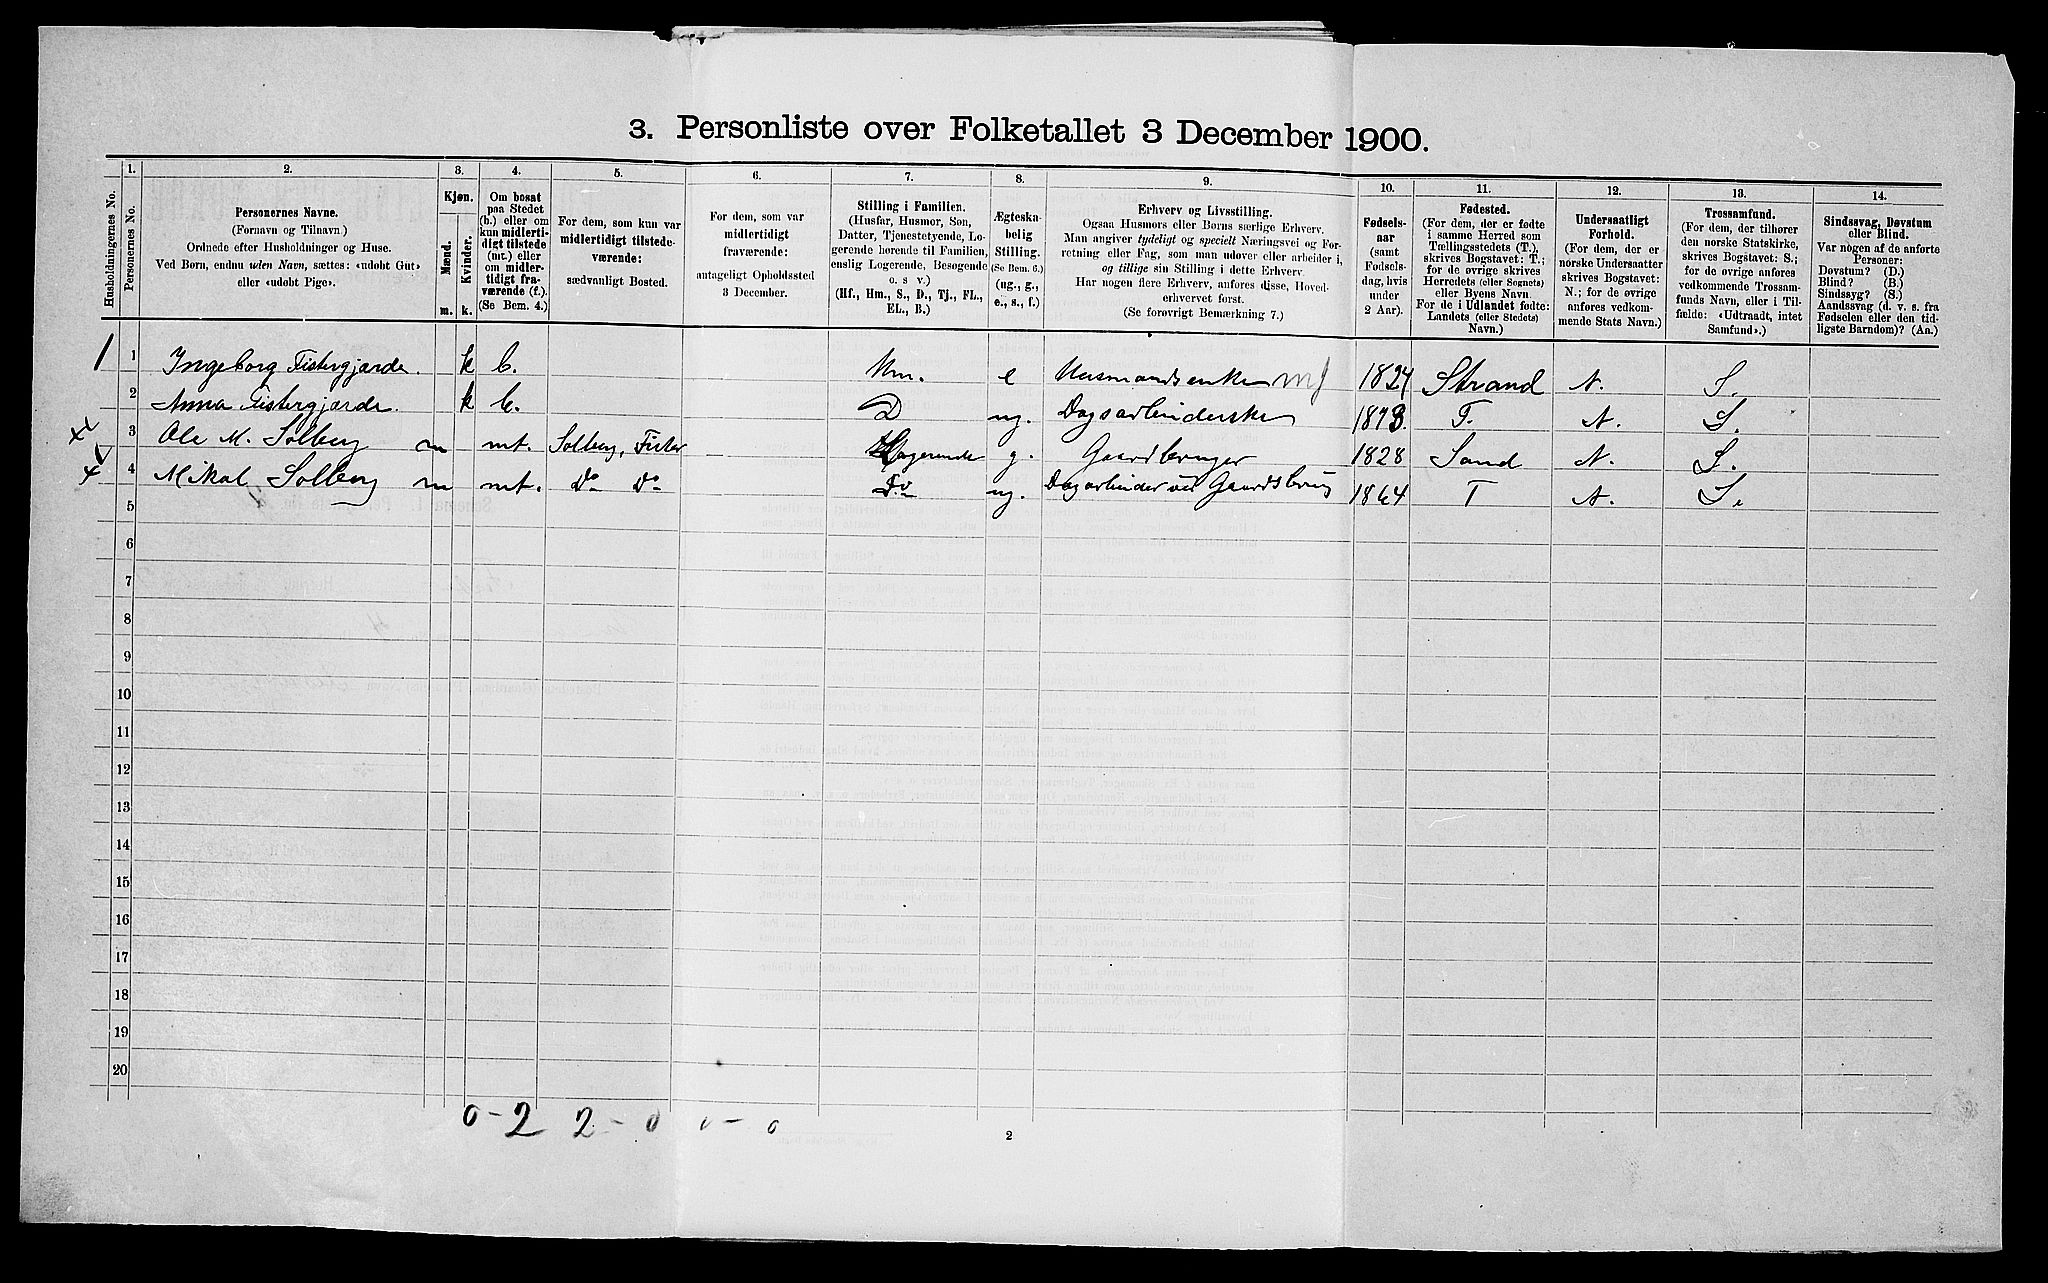 3. Personliste over Folketallet 3 December 1900.
1. 2. 3. 4. 5. 6. 7. 8. 9. 10. 11. 12. 13. 14.
Husholdningernes No.
Personernes No.
Personernes Navne.
(Fornavn og Tilnavn.)
Ordnede efter Husholdninger og Huse.
Ved Børn, endnu uden Navn, sættes: «udøbt Gut»
eller «udøbt Pige».
Kjøn.
Mænd.
Kvinder.
m. k.
Om bosat
paa Stedet
(b.) eller om
kun midlerti-
digt tilstede
(mt.) eller
om midler-
tidigt fra-
værende (f.).
(Se Bem. 4.)
For dem, som kun var
midlertidigt tilstede-
værende:
sædvanligt Bosted.
For dem, som var
midlertidigt
fraværende:
antageligt Opholdssted
3 December.
Stilling i Familien.
(Husfar, Husmor, Søn,
Datter, Tjenestetyende, Lo-
gerende hørende til Familien,
enslig Logerende, Besøgende
o. s v.)
(Hf., Hm., S., D., Tj., FL.,
EL., B.)
Ægteska-
belig
Stilling.
(Se Bem. 6.)
(ug., g.,
e., s., f.)
Erhverv og Livsstilling.
Ogsaa Husmors eller Børns særlige Erhverv.
Man angiver tydeligt og specielt Næringsvei og For-
retning eller Fag, som man udøver eller arbeider i,
og tillige sin Stilling i dette Erhverv.
Har nogen flere Erhverv, anføres disse, Hoved-
erhvervet først.
(Se forøvrigt Bemærkning 7.)
Fødsels-
aar
(samt
Fødsels-
dag, hvis
under
2 Aar).
Fødested.
(For dem, der er fødte
i samme Herred som
Tællingsstedets (T.),
skrives Bogstavet: T.;
for de øvrige skrives
Herredets (eller Sognets)
eller Byens Navn.
For de i Udlandet fødte:
Landets (eller Stedets)
Navn.)
Undersaatligt
Forhold.
(For dem, der er
norske Undersaatter
skrives Bogstavet:
N.; for de øvrige
anføres vedkom-
mende Stats Navn.)
Trossamfund.
(For dem, der tilhører
den norske Statskirke,
skrives Bogstavet: S.;
for de øvrige anføres
vedkommende Trossam-
funds Navn, eller i Til-
fælde: «Udtraadt, intet
Samfund».)
Sindssvag, Døvstum
eller Blind.
Var nogen af de anførte
Personer:
Døvstum? (D.)
Blind? (B.)
Sindssyg? (S.)
Aandssvag (d. v. s. fra
Fødselen eller den tid-
ligste Barndom)? (Aa.)
1 1 Ingeborg Fistergjerde. k b. Hm. e Husmandsenke 1824 Strand N. S.
2 Anna Fistergjerde. k b. D ug. Dagsarbeiderske 1873. T. N. S.
3 Ole M. Solberg m mt. Solberg, Fister Logerende g. Gaardbruger 1828 Sand N. S.
4 Mikal Solberg m mt. Do Do Do ug. Dagarbeider ved Gaardsbrug 1864 T N. S.
5
6
7
8
9
10
11
12
13
14
15
16
17
18
19
20
0-2 2-0 0-0
2